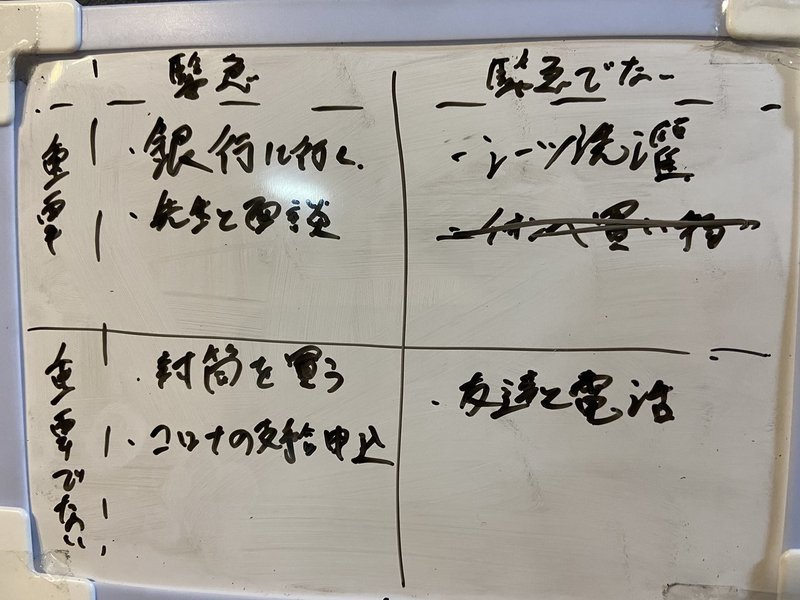 緊急
緊急でない
重要
・銀行に行く
・先生と面談
・シーツ洗濯
買い物
重要でない
・封筒を買う
・コロナの支給申込
・友達と電話